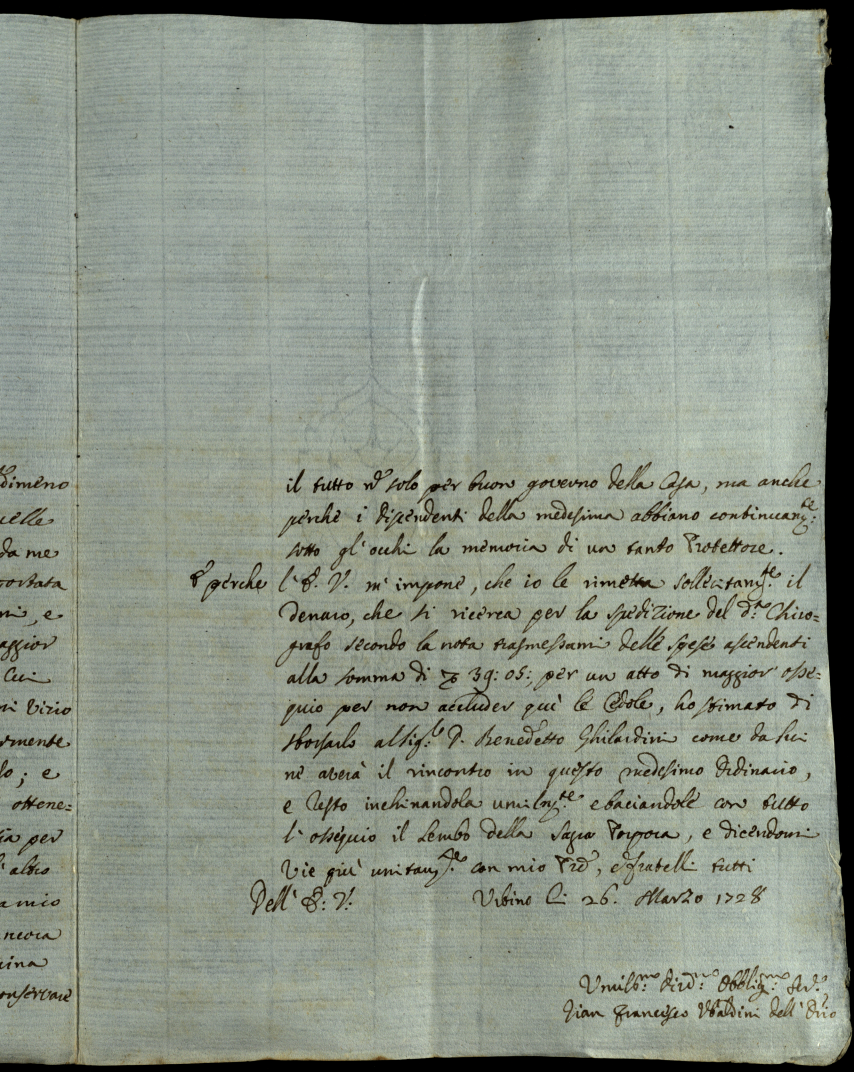 dimeno
uelle
da me
portata
ni, e
aggior
Cui
ni Vizio
armente
lo; e
ottene=
ia per
l'altro
a mio
ancora
cina
conservare
il tutto nō solo per buon governo della Casa, ma anche
perche i dipendenti della medesima abbiano continuamte:
sotto gl'occhi la memoria di un tanto Protettore.
E perche l'E. V. m'impone, che io le rimetta sollecitamte. il
Denaro, che si ricerca per la spedizione del d.to Chiro=
grafo secondo la nota trasmessami delle spese ascendenti
alla somma di 39: 05:, per un atto di maggior osse=
quio per non accluder quì le Cedole, ho stimato di
sborsarlo al Sig.r D. Benedetto Ghilardini come da lui
ne averà il rincontro in questo medesimo Ordinario,
e resto inchinandola umilmte. e baciandole con tutto
l'ossequio il Lembo della Sagra Porpora, e dicendomi
Vie più unitamte. con mio Prē, e fratelli tutti
Dell'E: V. Urbino li 26. Marzo 1728
Umilmo: Divmo: Obbligmo: Ser.e
Gian Francesco Ubaldini dell'